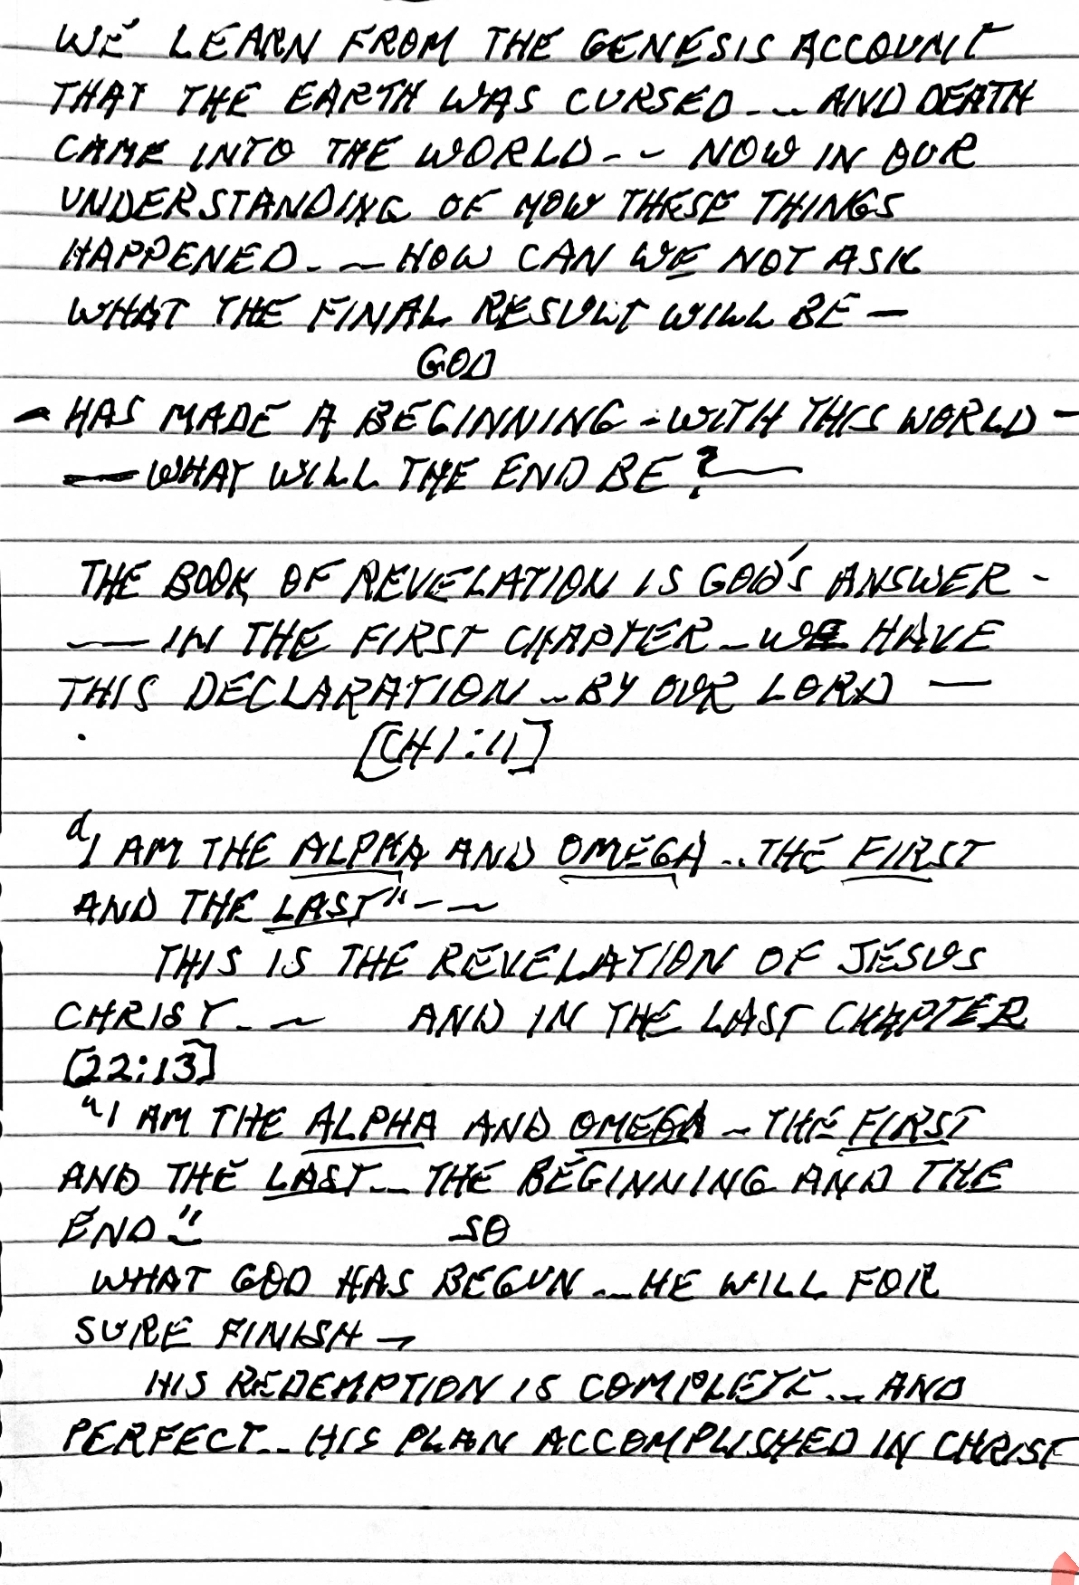 WE LEARN FROM THE GENESIS ACCOUNT
THAT THE EARTH WAS CURSED -- AND DEATH
CAME INTO THE WORLD -- NOW IN OUR
UNDERSTANDING OF HOW THESE THINGS
HAPPENED -- HOW CAN WE NOT ASK
WHAT THE FINAL RESULT WILL BE —
GOD
- HAS MADE A BEGINNING - WITH THIS WORLD -
— WHAT WILL THE END BE? —
THE BOOK OF REVELATION IS GOD'S ANSWER -
— IN THE FIRST CHAPTER - WE HAVE
THIS DECLARATION -- BY OUR LORD —
[CH 1:11]
"I AM THE ALPHA AND OMEGA .. THE FIRST
AND THE LAST" --
THIS IS THE REVELATION OF JESUS
CHRIST -- AND IN THE LAST CHAPTER
[22:13]
"I AM THE ALPHA AND OMEGA - THE FIRST
AND THE LAST -- THE BEGINNING AND THE
END" SO
WHAT GOD HAS BEGUN -- HE WILL FOR
SURE FINISH -
HIS REDEMPTION IS COMPLETE -- AND
PERFECT -- HIS PLAN ACCOMPLISHED IN CHRIST